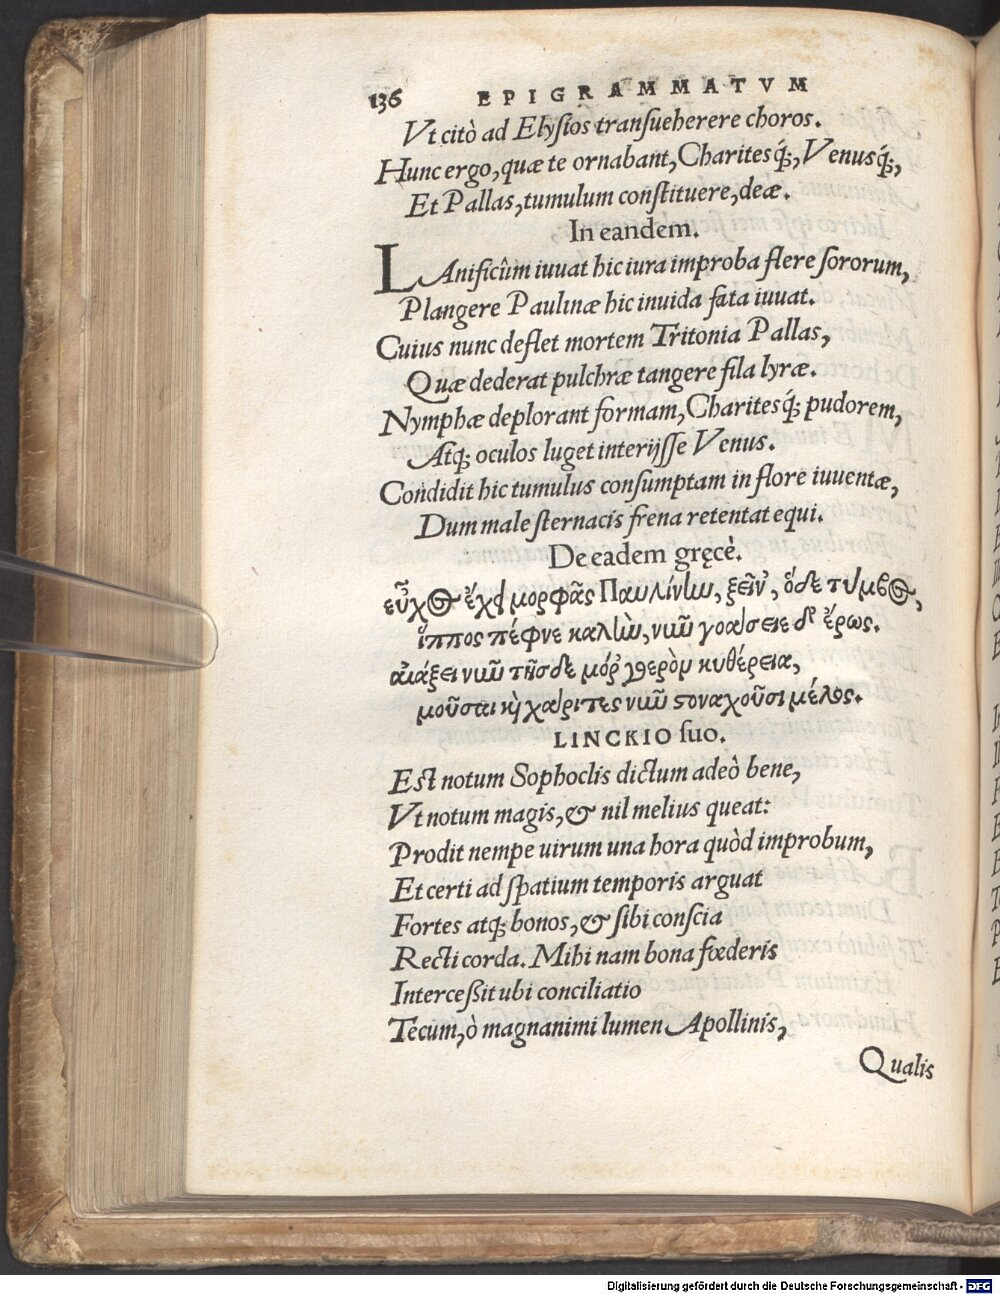 136 EPIGRAMMATVM
Vt citò ad Elysios transueherere choros.
Hunc ergo, quæ te ornabant, Charitesq́;, Venusq́;,
Et Pallas, tumulum constituere, deæ.
In eandem.
LAnificûm iuuat hic iura improba flere sororum,
Plangere Paulinæ hic inuida fata iuuat.
Cuius nunc deflet mortem Tritonia Pallas,
Quæ dederat pulchræ tangere fila lyræ.
Nymphæ deplorant formam, Charitesq́; pudorem,
Atq; oculos luget interijsse Venus.
Condidit hic tumulus consumptam in flore iuuentæ,
Dum male sternacis frena retentat equi.
De eadem gręcè.
εὖχος ἔχει μορφᾶς Παυλίνην, ξεῖν', ὅδε τύμβος,
ἵππος πέφνε καλὴν, νῦν γοάεσκε δ' ἔρως.
αἰάξει νῦν τῆσδε μόρον θερὸν κυθέρεια,
μοῦσαι καὶ χάριτες νῦν στοναχοῦσι μέλος.
LINCKIO suo.
Est notum Sophoclis dictum adeò bene,
Vt notum magis, & nil melius queat:
Prodit nempe uirum una hora quòd improbum,
Et certi ad spatium temporis arguat
Fortes atq; bonos, & sibi conscia
Recti corda. Mihi nam bona fœderis
Intercessit ubi conciliatio
Tecum, ò magnanimi lumen Apollinis,
Qualis
Digitalisierung gefördert durch die Deutsche Forschungsgemeinschaft - DFG